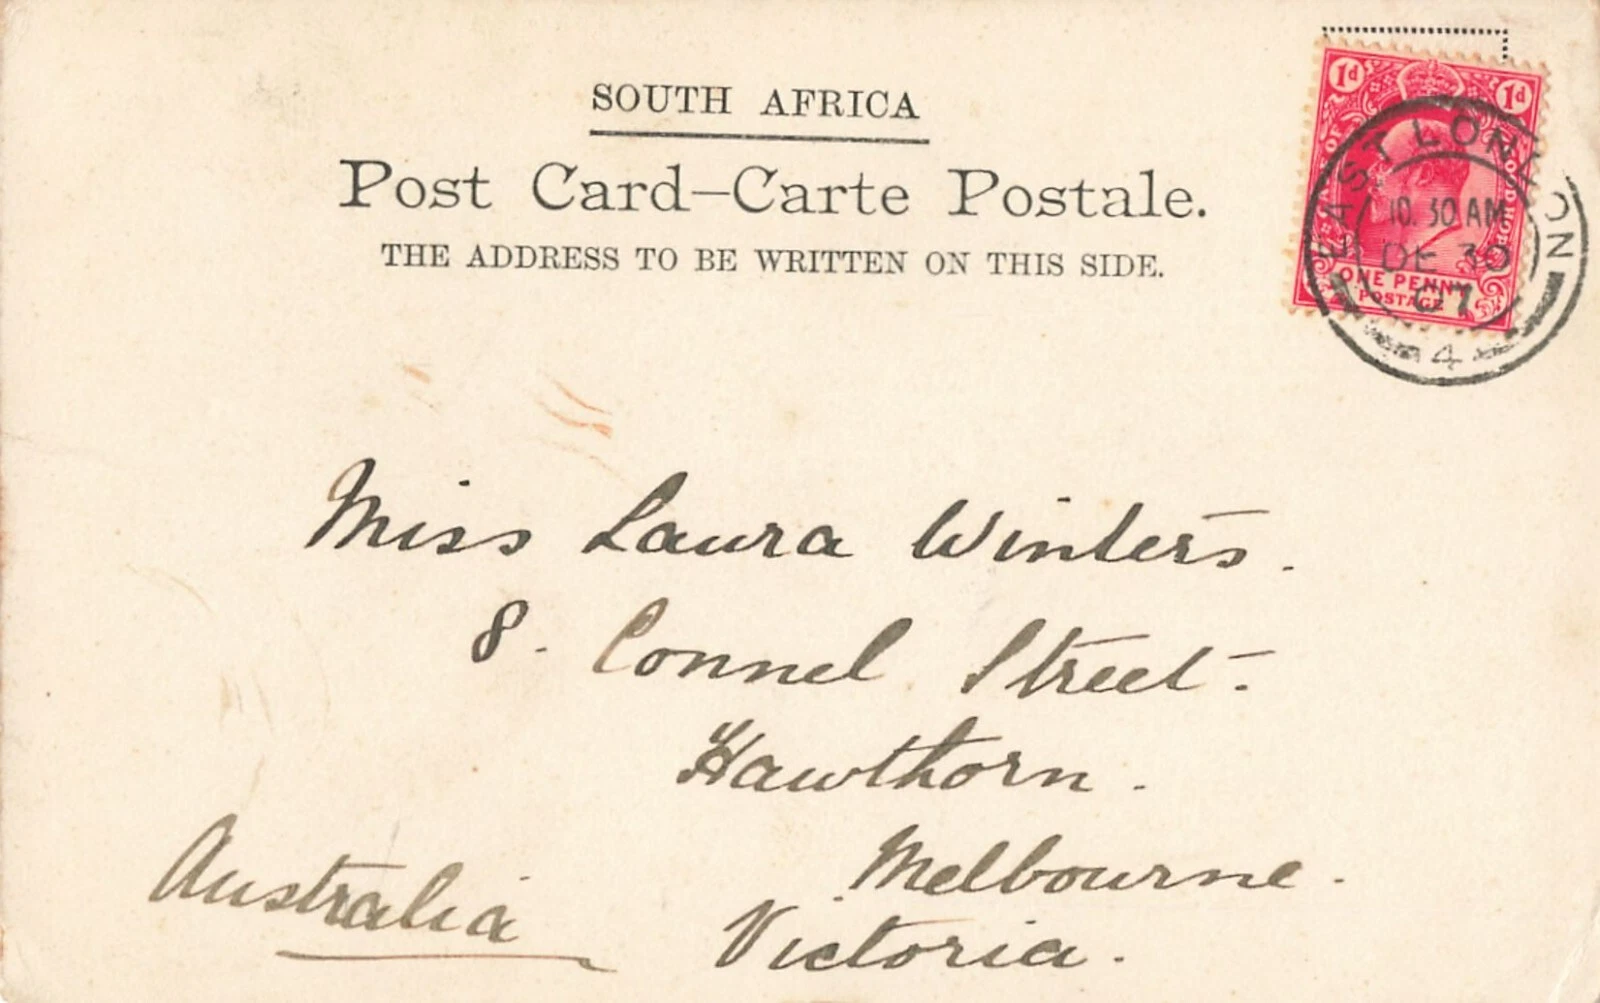 SOUTH AFRICA
Post Card—Carte Postale.
THE ADDRESS TO BE WRITTEN ON THIS SIDE.
1d 1d
OF GOOD HOPE
ONE PENNY
POSTAGE
EAST LONDON
10.30 AM
DE 30
07
4
Miss Laura Winters.
8. Connel Street.
Hawthorn.
Melbourne.
Victoria.
Australia